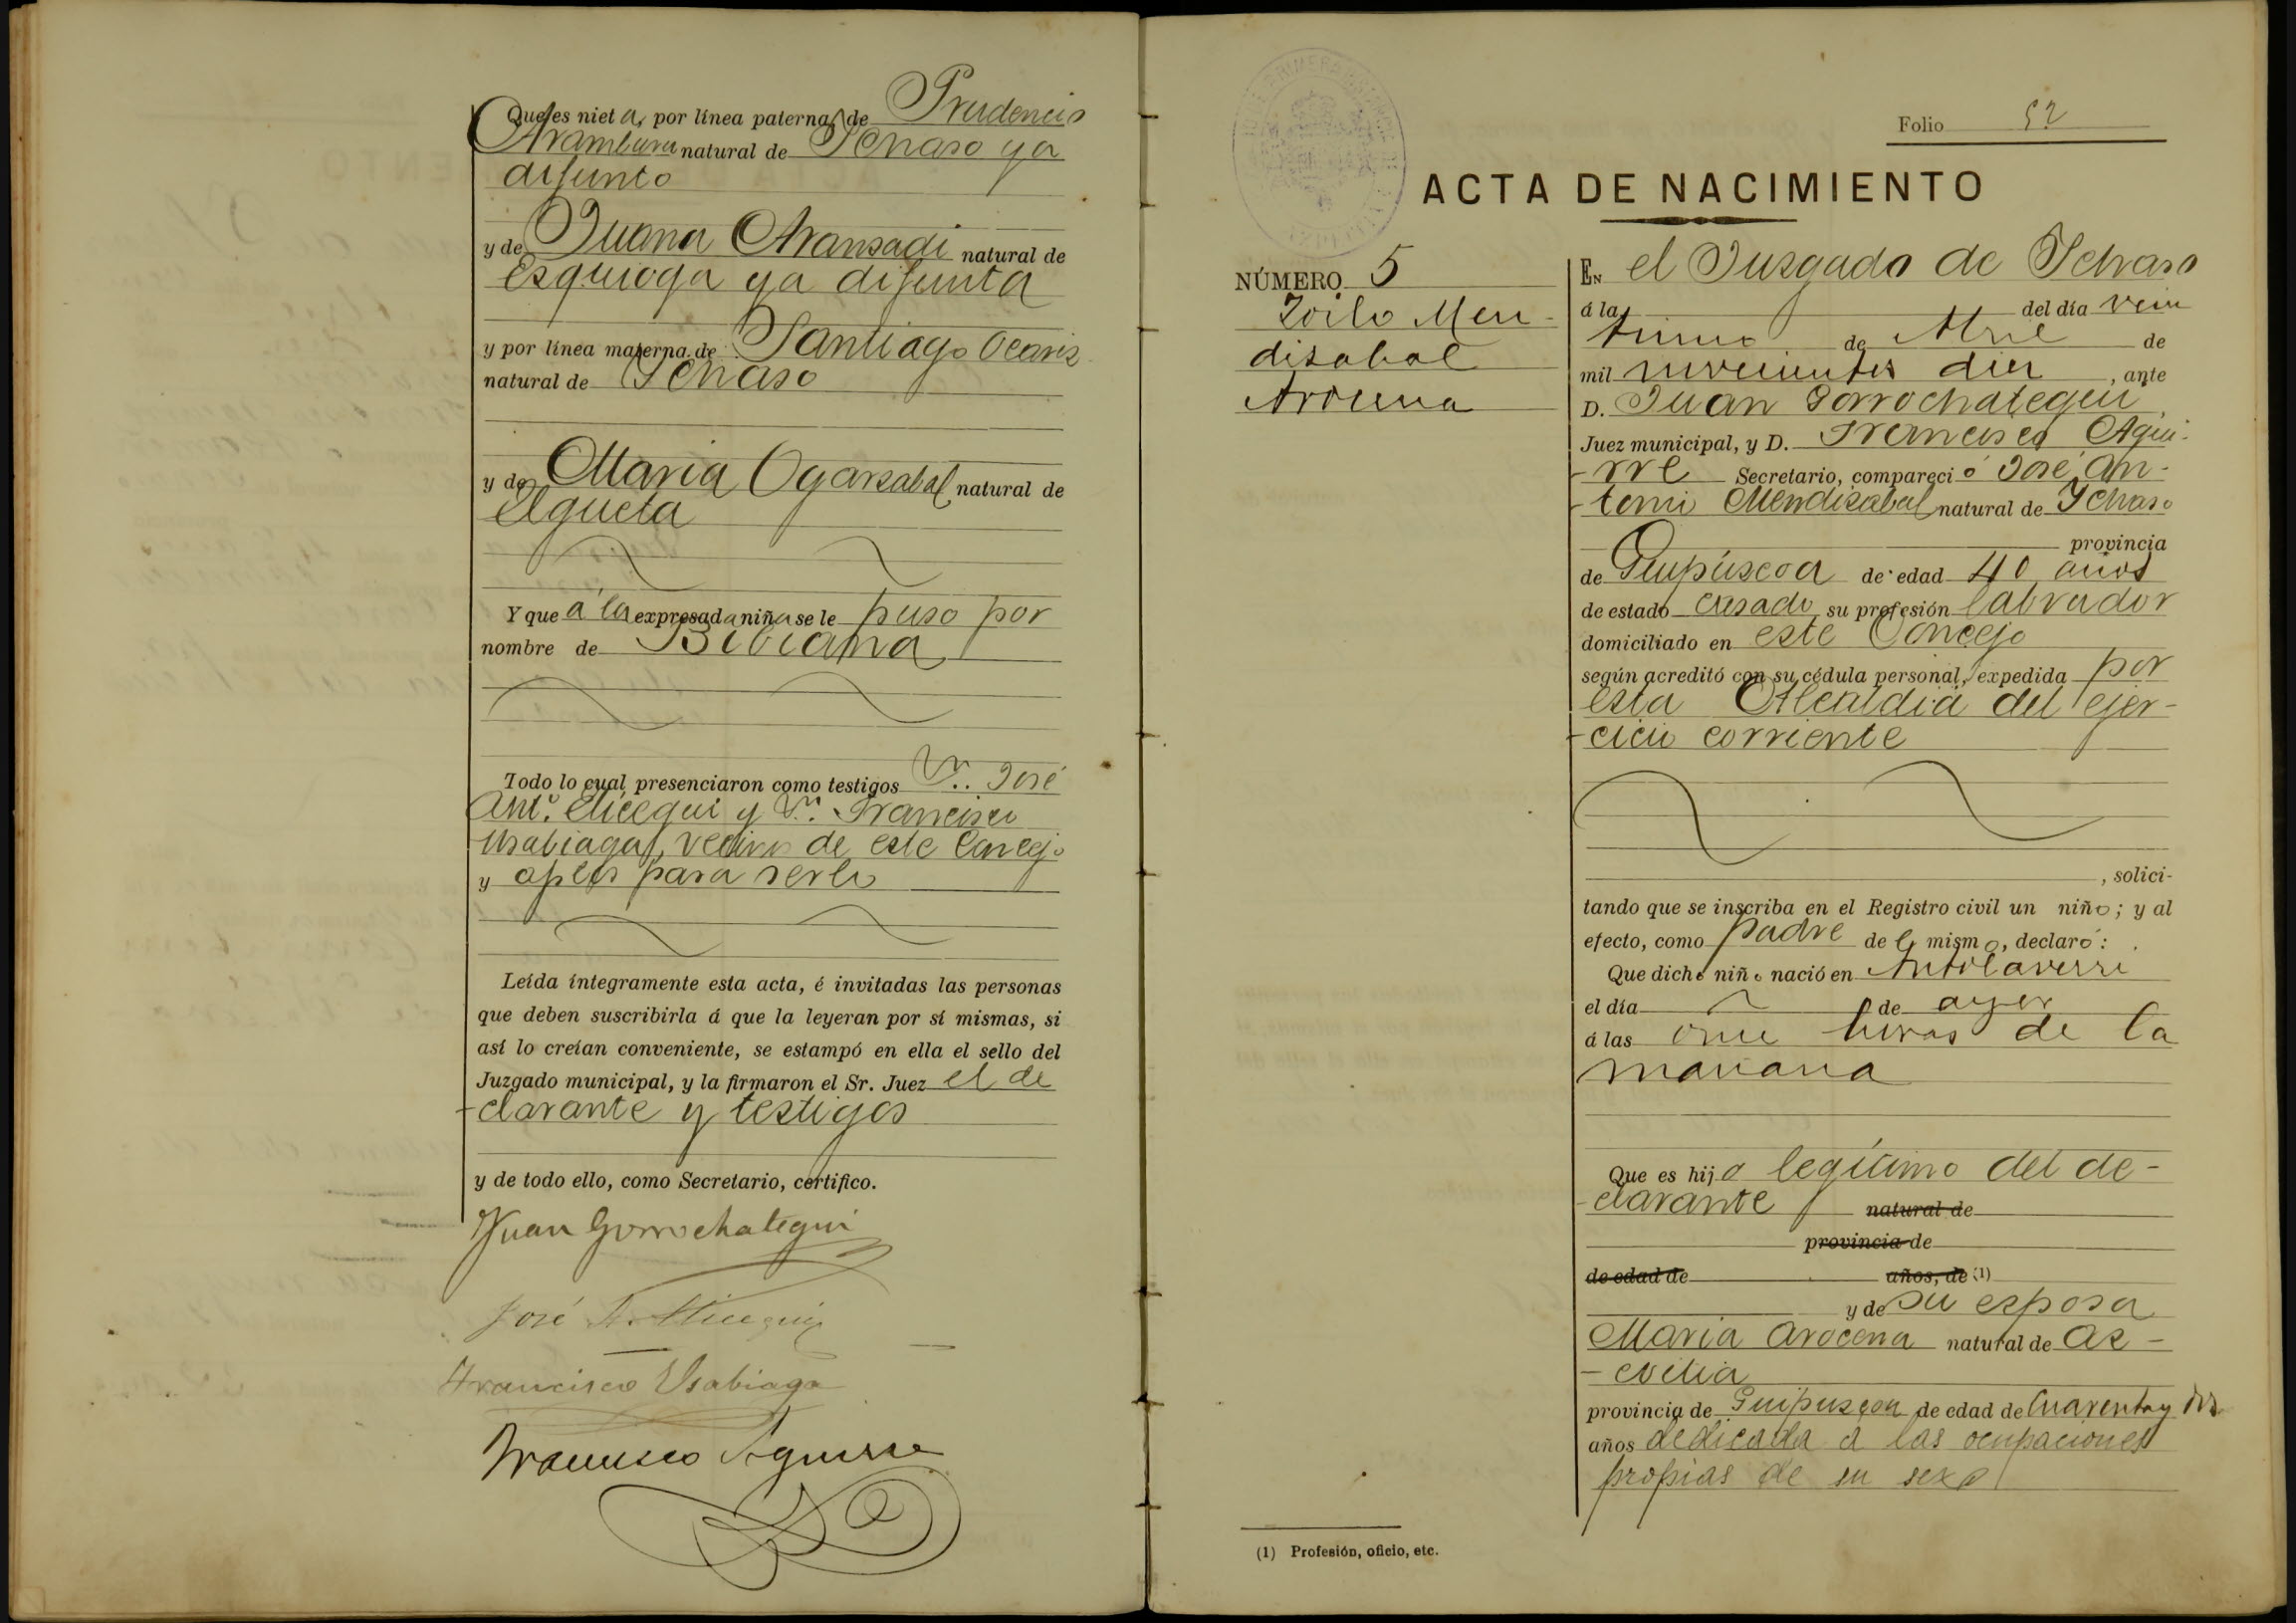 Que es nieta, por línea paterna, de Prudencio
Aramburu natural de Ichaso ya
difunto
y de Juana Aransadi natural de
Esquioga ya difunta
y por línea materna de Santiago Ocariz
natural de Ichaso
y de Maria Ogarzabal natural de
Elgueta
Y que á la expresada niña se le puso por
nombre de Bibiana
Todo lo cual presenciaron como testigos Dn. José
Antº. Elicegui y Dn. Francisco
Usabiaga, vecinos de este Concejo
y aptos para serlo
Leída íntegramente esta acta, é invitadas las personas
que deben suscribirla á que la leyeran por sí mismas, si
así lo creían conveniente, se estampó en ella el sello del
Juzgado municipal, y la firmaron el Sr. Juez el de
-clarante y testigos
y de todo ello, como Secretario, certifico.
Juan Gorrochategui
José A. Elicegui
Francisco Usabiaga
Francisco Aguirre
Folio 52
ACTA DE NACIMIENTO
NÚMERO 5
Zoilo Men-
dizabal
Arocena
EN el Juzgado de Ichaso
á la del día vein
tiuno de Abril de
mil novecientos diez, ante
D. Juan Gorrochategui,
Juez municipal, y D. Francisco Agui-
-rre Secretario, compareció José An-
-tonio Mendizabal natural de Ychaso
provincia
de Guipúzcoa de edad 40 años
de estado casado su profesión labrador
domiciliado en este Concejo
según acreditó con su cédula personal, expedida por
esta Alcaldia del ejer-
-cicio corriente
, solici-
tando que se inscriba en el Registro civil un niño; y al
efecto, como padre del mismo, declaró:
Que dicho niño nació en
el día de ayer
á las once horas de la
mañana
Que es hijo legítimo del de-
-clarante natural de
provincia de
de edad de años, de (1)
y de su esposa
Maria Arocena natural de Az-
-coitia
provincia de Guipuzcoa de edad de Cuarenta y dos
años dedicada á las ocupaciones
propias de su sexo
(1) Profesión, oficio, etc.